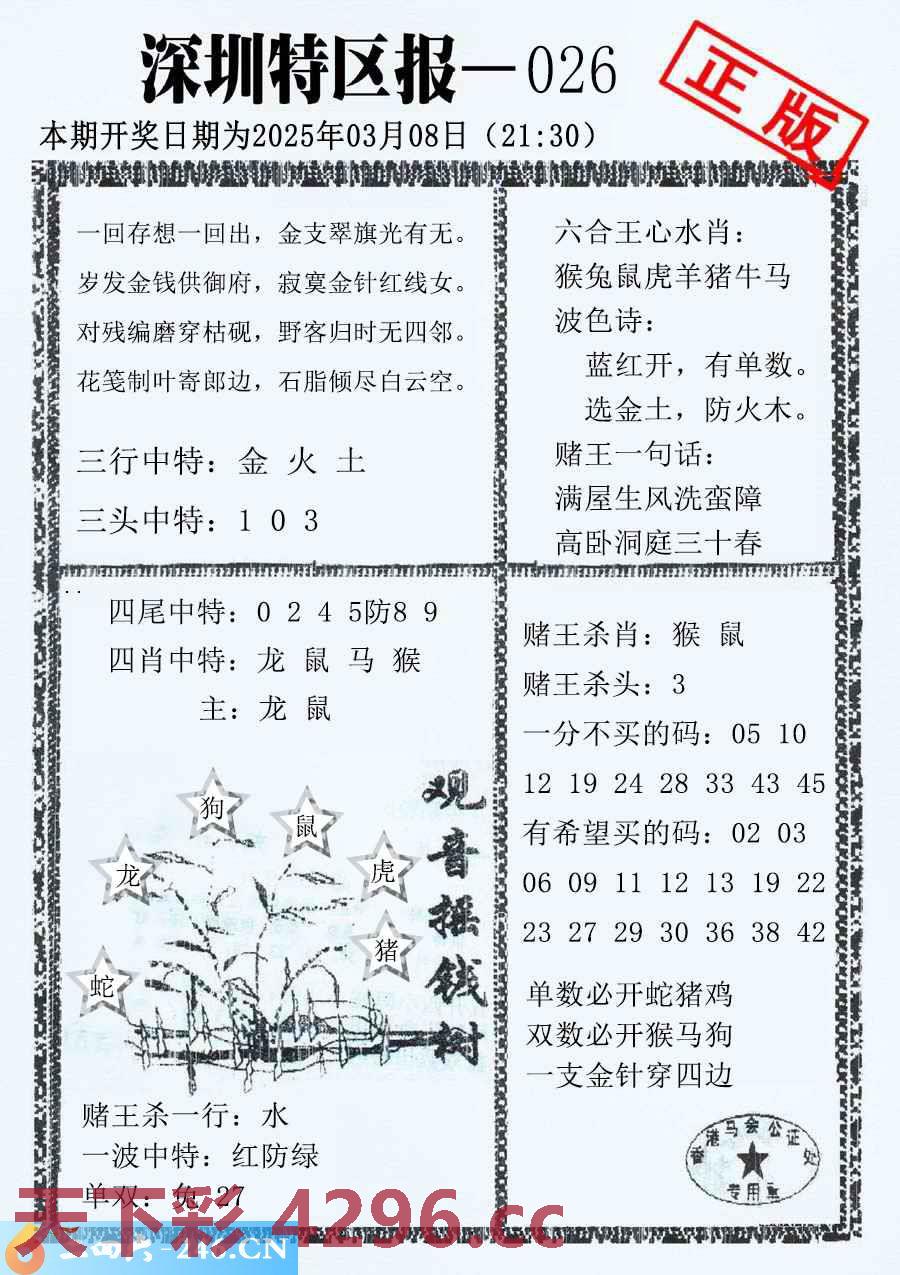 深圳特区报—026
正版
本期开奖日期为2025年03月08日（21:30）
一回存想一回出，金支翠旗光有无。
岁发金钱供御府，寂寞金针红线女。
对残编磨穿枯砚，野客归时无四邻。
花笺制叶寄郎边，石脂倾尽白云空。
三行中特：金 火 土
三头中特：1 0 3
六合王心水肖：
猴兔鼠虎羊猪牛马
波色诗：
蓝红开，有单数。
选金土，防火木。
赌王一句话：
满屋生风洗蛮障
高卧洞庭三十春
四尾中特：0 2 4 5防8 9
四肖中特：龙 鼠 马 猴
主：龙 鼠
狗
鼠
龙
虎
猪
蛇
观音摇钱树
赌王杀一行：水
一波中特：红防绿
单双：兔 27
赌王杀肖：猴 鼠
赌王杀头：3
一分不买的码：05 10
12 19 24 28 33 43 45
有希望买的码：02 03
06 09 11 12 13 19 22
23 27 29 30 36 38 42
单数必开蛇猪鸡
双数必开猴马狗
一支金针穿四边
香港马会公证处
专用章
天下彩 4296.cc
246.CN